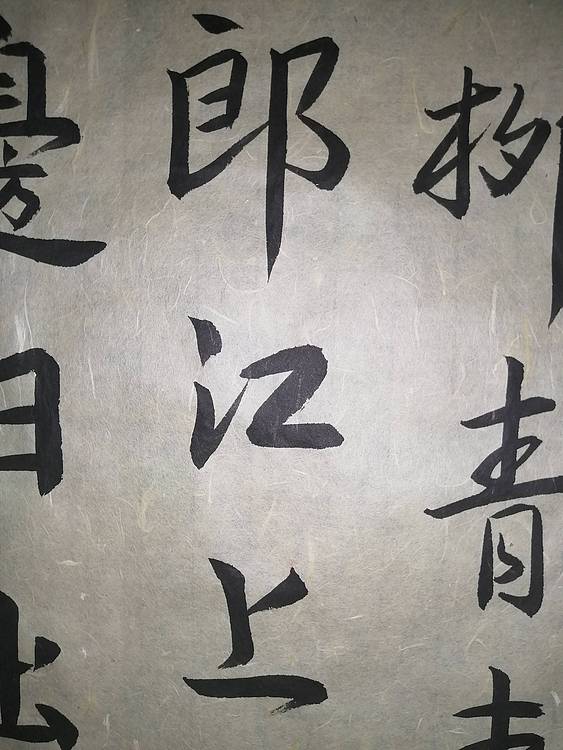 柳青青
郎江上
邊日出